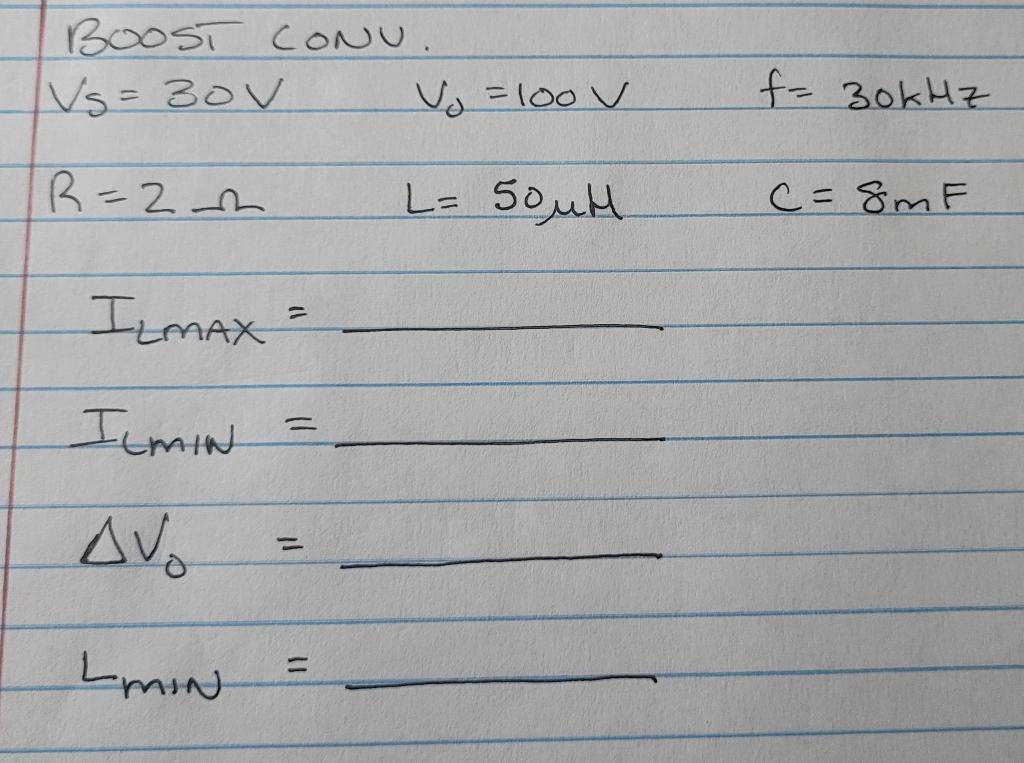 BOOST CONV.
Vs = 30V Vo = 100V f = 30kHz
R = 2 Ω L = 50μH C = 8mF
ILMAX =
ILMIN =
ΔVo =
LMIN =